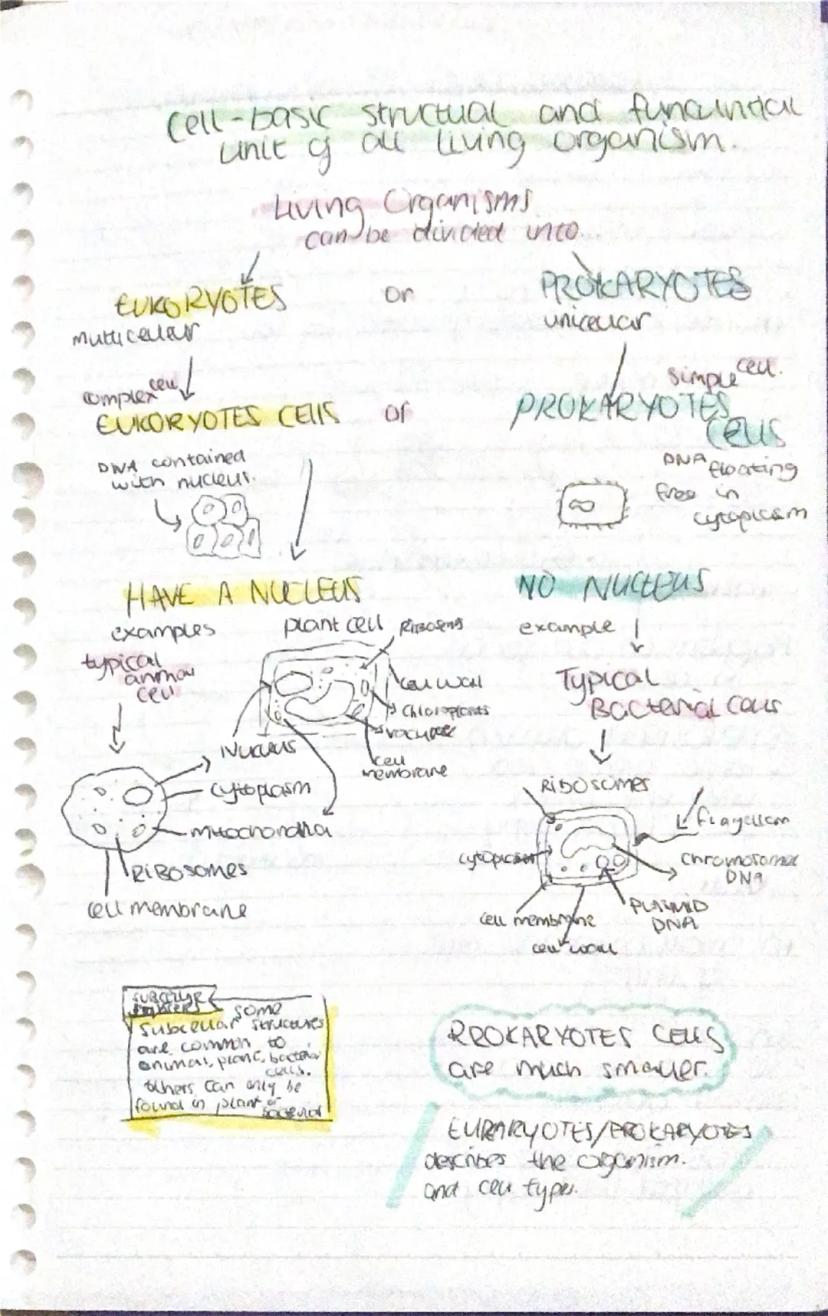 Cell-basic structual and funcuntial
unit of all living organism.
Living Organisms
can be divided into
EUKORYOTES or PROKARYOTES
multicellular unicellular
complex cell simple cell.
EUKORYOTES CELLS or PROKARYOTES
CELLS
DNA contained
with nucleus.
DNA floating
free in
cytoplasm
HAVE A NUCLEUS NO NUCLEUS
examples plant cell example
typical
animal
cell
Ribosens
cell wall
Chloroplants
vacuole
cell
membrane
Nucleus
cytoplasm
mitochondria
RIBOSOMES
cell membrane
Typical
Bacterial Cells
RIBOSOMES
flagellem
cytoplasm
chromosomal
DNA
PLASMID
DNA
cell membrane
cell wall
some
subcellular structures
are common to
animal, plant, bacteria
cells.
others can only be
found in plant or
bacterial
PROKARYOTES CELLS
are much smaller.
EUKARYOTES/PROKARYOTES
describes the organism.
and cell types.